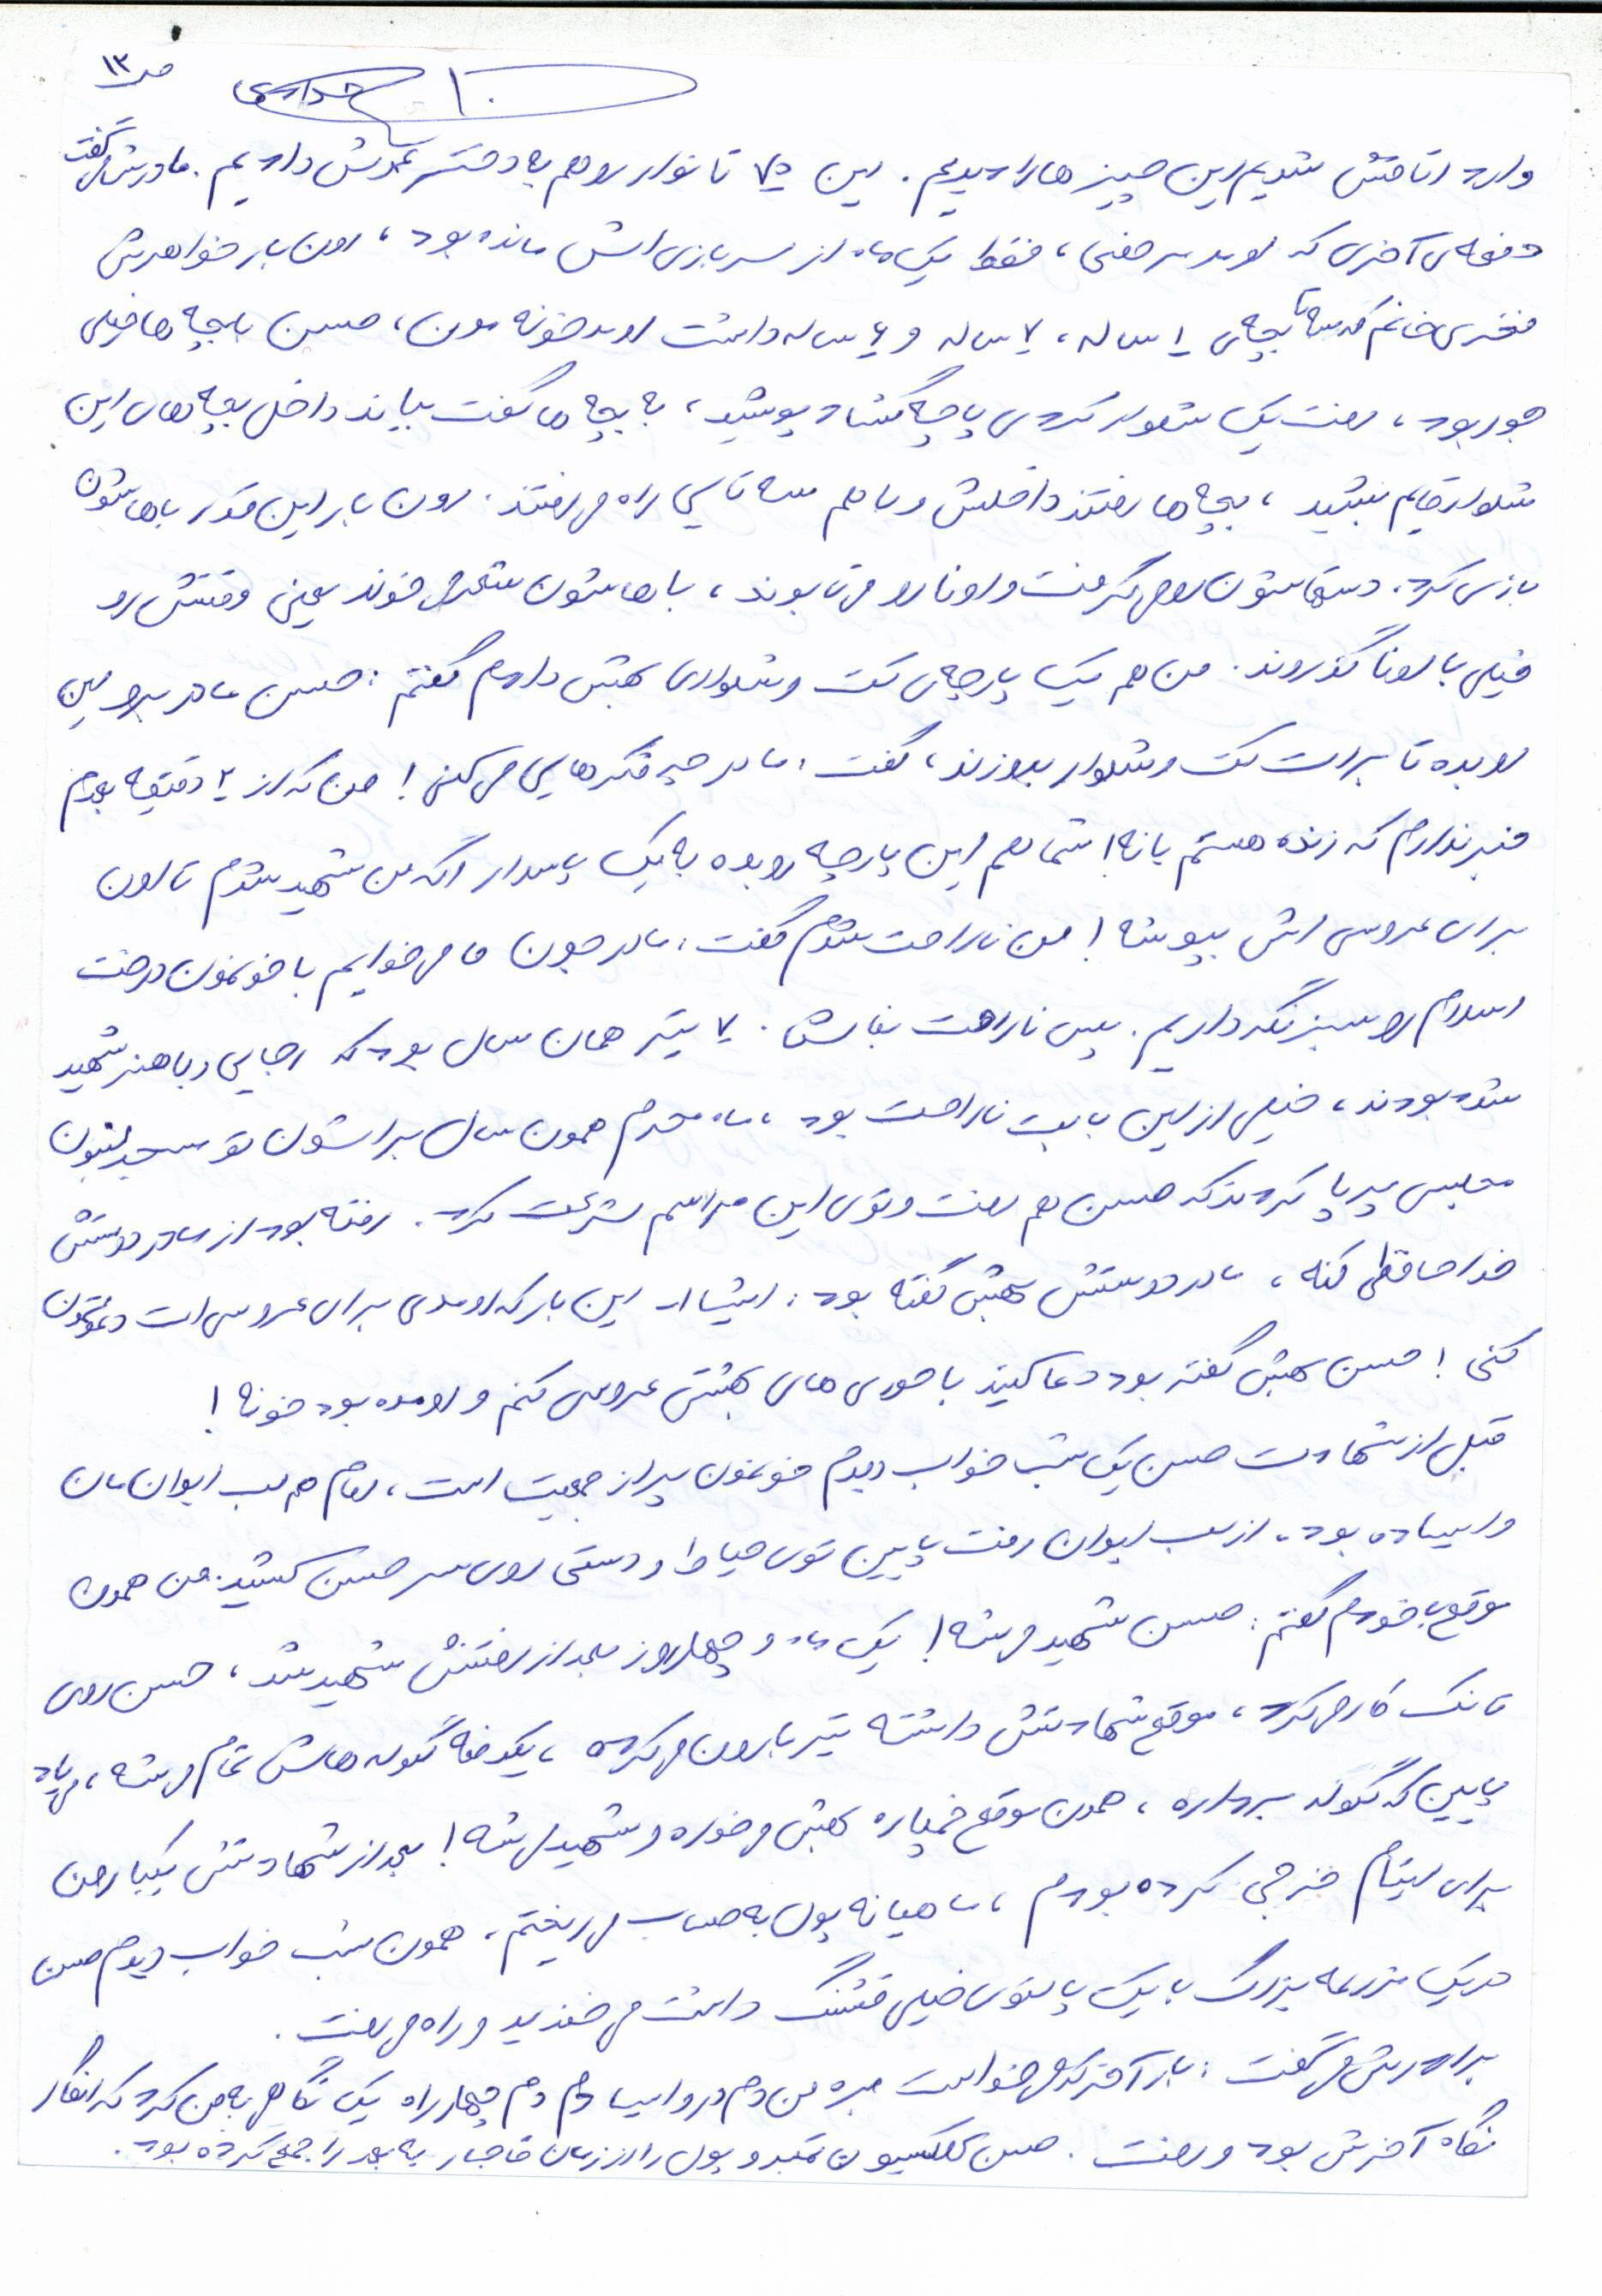 ص ۱۳
وارد اتاقش شدیم این چیزها را دیدیم. این ۷ تا نوار رو هم به دختر عموش دادیم. مادرش می گفت
دفعه ی آخری که اومد مرخصی، فقط یک ماه از سربازی اش مانده بود، اون بار خواهرش
فخری خانم که سه تا بچه ی ۱ ساله، ۷ ساله و ۶ ساله داشت اومد خونه مون، حسن با بچه ها خیلی
جور بود، رفت یک شلوار کردی پاچه گشاد پوشید، به بچه ها گفت بیاید داخل پاچه های این
شلوار قایم بشید، بچه ها رفتند داخلش و با هم سه تایی راه می رفتند. اون بار این قدر باهاشون
بازی کرد، دستهاشون رو می گرفت و اونا رو می تابوند، باهاشون شعر می خوند یعنی وقتش رو
خیلی با اونا گذروند. من هم یک پارچه ی کت و شلواری بهش دادم گفتم: حسن مادر ببر این
رو بده تا برات کت و شلوار بدوزند، گفت: مادر چه فکرهایی می کنی! من که از ۲ دقیقه بعدم
خبر ندارم که زنده هستم یا نه! شما هم این پارچه رو بده به یک پاسدار اگه من شهید شدم تا اون
برای عروسی اش بپوشه! من ناراحت شدم گفت: مادر جون ما می خوایم با خونمون درخت
اسلام رو سبز نگه داریم. پس ناراحت نباش. ۷ تیر همان سال بود که رجایی و باهنر شهید
شده بودند، خیلی از این بابت ناراحت بود، ماه محرم همون سال براشون تو مسجد
مجلس برپا کردند که حسن هم رفت و توی این مراسم شرکت کرد. رفته بود از مادر دوستش
خداحافظی کنه، مادر دوستش بهش گفته بود: ایشاا.. این بار که اومدی برای عروسی ات دعوتمون
کنی! حسن بهش گفته بود دعا کنید با حوری های بهشتی عروسی کنم و اومده بود خونه!
قبل از شهادت حسن یک شب خواب دیدم خونمون پر از جمعیت است، امام هم لب ایوان مان
وایساده بود، از لب ایوان رفت پایین توی حیاط و دستی روی سر حسن کشید. من همون
موقع با خودم گفتم: حسن شهید می شه! یک ماه و چهار روز بعد از رفتنش شهید شد، حسن روی
تانک کار می کرد، موقع شهادتش داشته تیر بارون می کرده، یکدفعه گلوله هاش تمام می شه، می یاد
پایین که گلوله برداره، همون موقع خمپاره بهش می خوره و شهید می شه! بعد از شهادتش یکبار من
برای ایتام خرجی کرده بودم، ماهیانه پول به حساب می ریختم، همون شب خواب دیدم حسن
در یک مزرعه بزرگ با یک پالتوی خیلی قشنگ داشت می خندید و راه می رفت.
برادرش می گفت: بار آخر که می خواست بره من دم در وایسادم دم چهار راه یک نگاهی به من کرد که انگار
نگاه آخرش بود و رفت. حسن کلکسیون تمبر و پول را از زمان قاجار به بعد را جمع کرده بود.